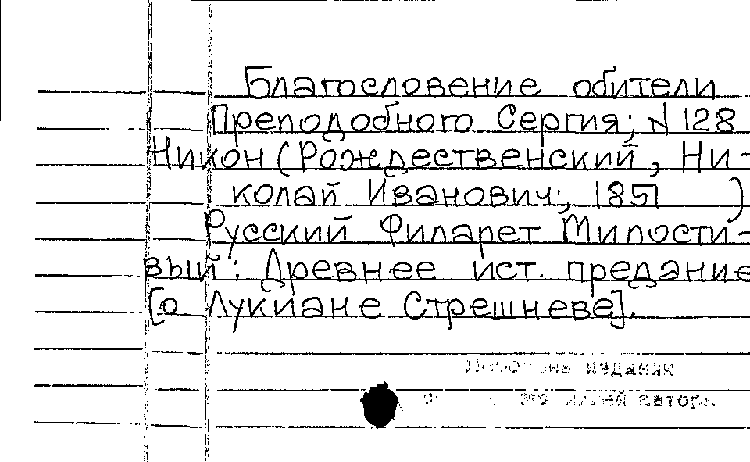 Благословение обители
Преподобного Сергия; № 128
Никон (Рождественский, Ни-
колай Иванович; 1851 )
Русский Филарет Милости-
вый: Древнее ист. предание
[о Лукиане Стрешневе].
издания
автора